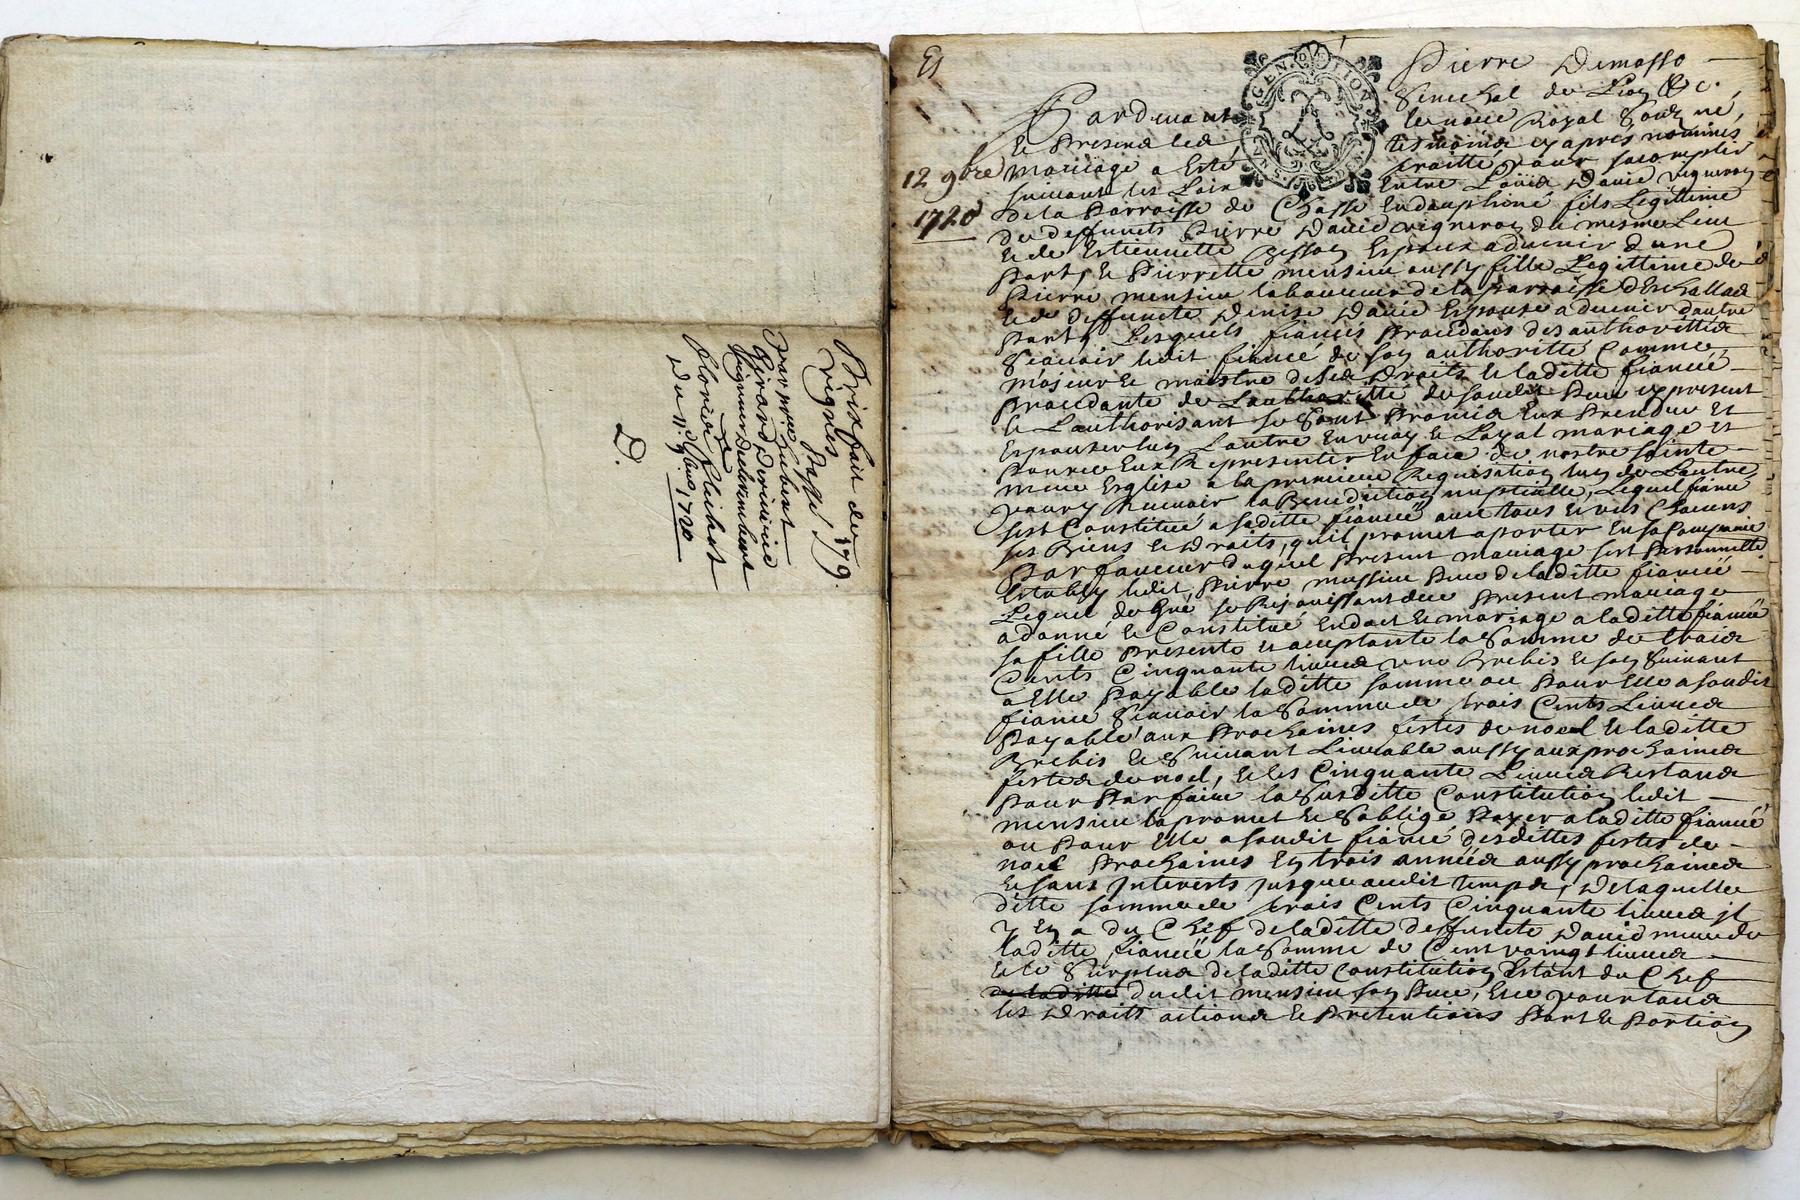 Prixfait de 179.
vignes
Passé
par moy Hubert
Girard
vigneron
Floris Plichert
Du 11e 9bre 1720
D.
GEN. DE LION
Pierre Demasso
Senechal de Lion &c.
Pardevant le notre Royal Sousne,
Le Present les tesmoins cy apres nommés
12 9bre mariage a Esté traitté pour sacomplir
suivant les Loix Entre Loüis David vigneron
1720
de la Parroisse de Chasse Endauphiné fils Legitime
de deffuncts Pierre David vigneron du mesme Lieu
et de Estiennette Espoux aduenir dune
Part, Et Pierrette mensieu aussy fille Legittime de
Pierre mensieu laboureur de la parroisse DEschallas
Et de deffuncte Denise David Espouse aduenir dautre
Party Lesquels fiancés Procedans des authorittés
Scauoir ledit fiancé de son authoritté Comme
majeur Et maistre de ses Droits Et laditte fiancée
Procedante de Lauthoritté dusoudit Pere cy present
Et Lauthorisant se sont Promis Eux Prendre Et
Espouser lun Lautre En vray Et Loyal mariage Et
Pource Eux Representer En face de nostre sainte
mere Esglise a la premiere Requisition lun de Lautre
pour y Receuoir la Benediction nuptialle, Lequel fiancé
sest Constitué a saditte fiancée auec tous Et vns Chacuns
ses Biens Et Droits, quil promet aporter En sa Compagnie
Par faueur duquel Present mariage sest Personnellem.
Estably ledit Pierre mensieu Pere de laditte fiancée
Lequel de Gré se Rejouissant dece Present mariage
a donné Et Constitué En dot Et mariage a laditte fiancée
sa fille Presente Et acceptante la Somme de trois
Cents Cinquante liures une Brebis Et son Suiuant
a Elle Payable laditte somme ou Pour Elle a soudit
fiancé Scauoir la Somme de trois Cents Liures
Payable aux Prochaines festes de noel Et laditte
Brebis Et Suiuant Liurable aussy aux prochaines
festes de noel, Et les Cinquante Liures Restans
Pour Parfaire la Susditte Constitution ledit
mensieu la promet Et Soblige Payer a laditte fiancée
ou Pour Elle a soudit fiancé desdittes festes de
noel Prochaines En trois années aussy prochaines
Et sans Interests jusques audit temps, De laquelle
ditte somme de trois Cents Cinquante liures jl
y En a du Chef de laditte deffuncte David mere de
laditte fiancée la Somme de Cent vaingt liures
Et le Surplus de laditte Constitution Estant du Chef
de laditte dudit mensieu son Pere, Et ce pour tous
les Droits actions Et Pretentions Part Et Portion